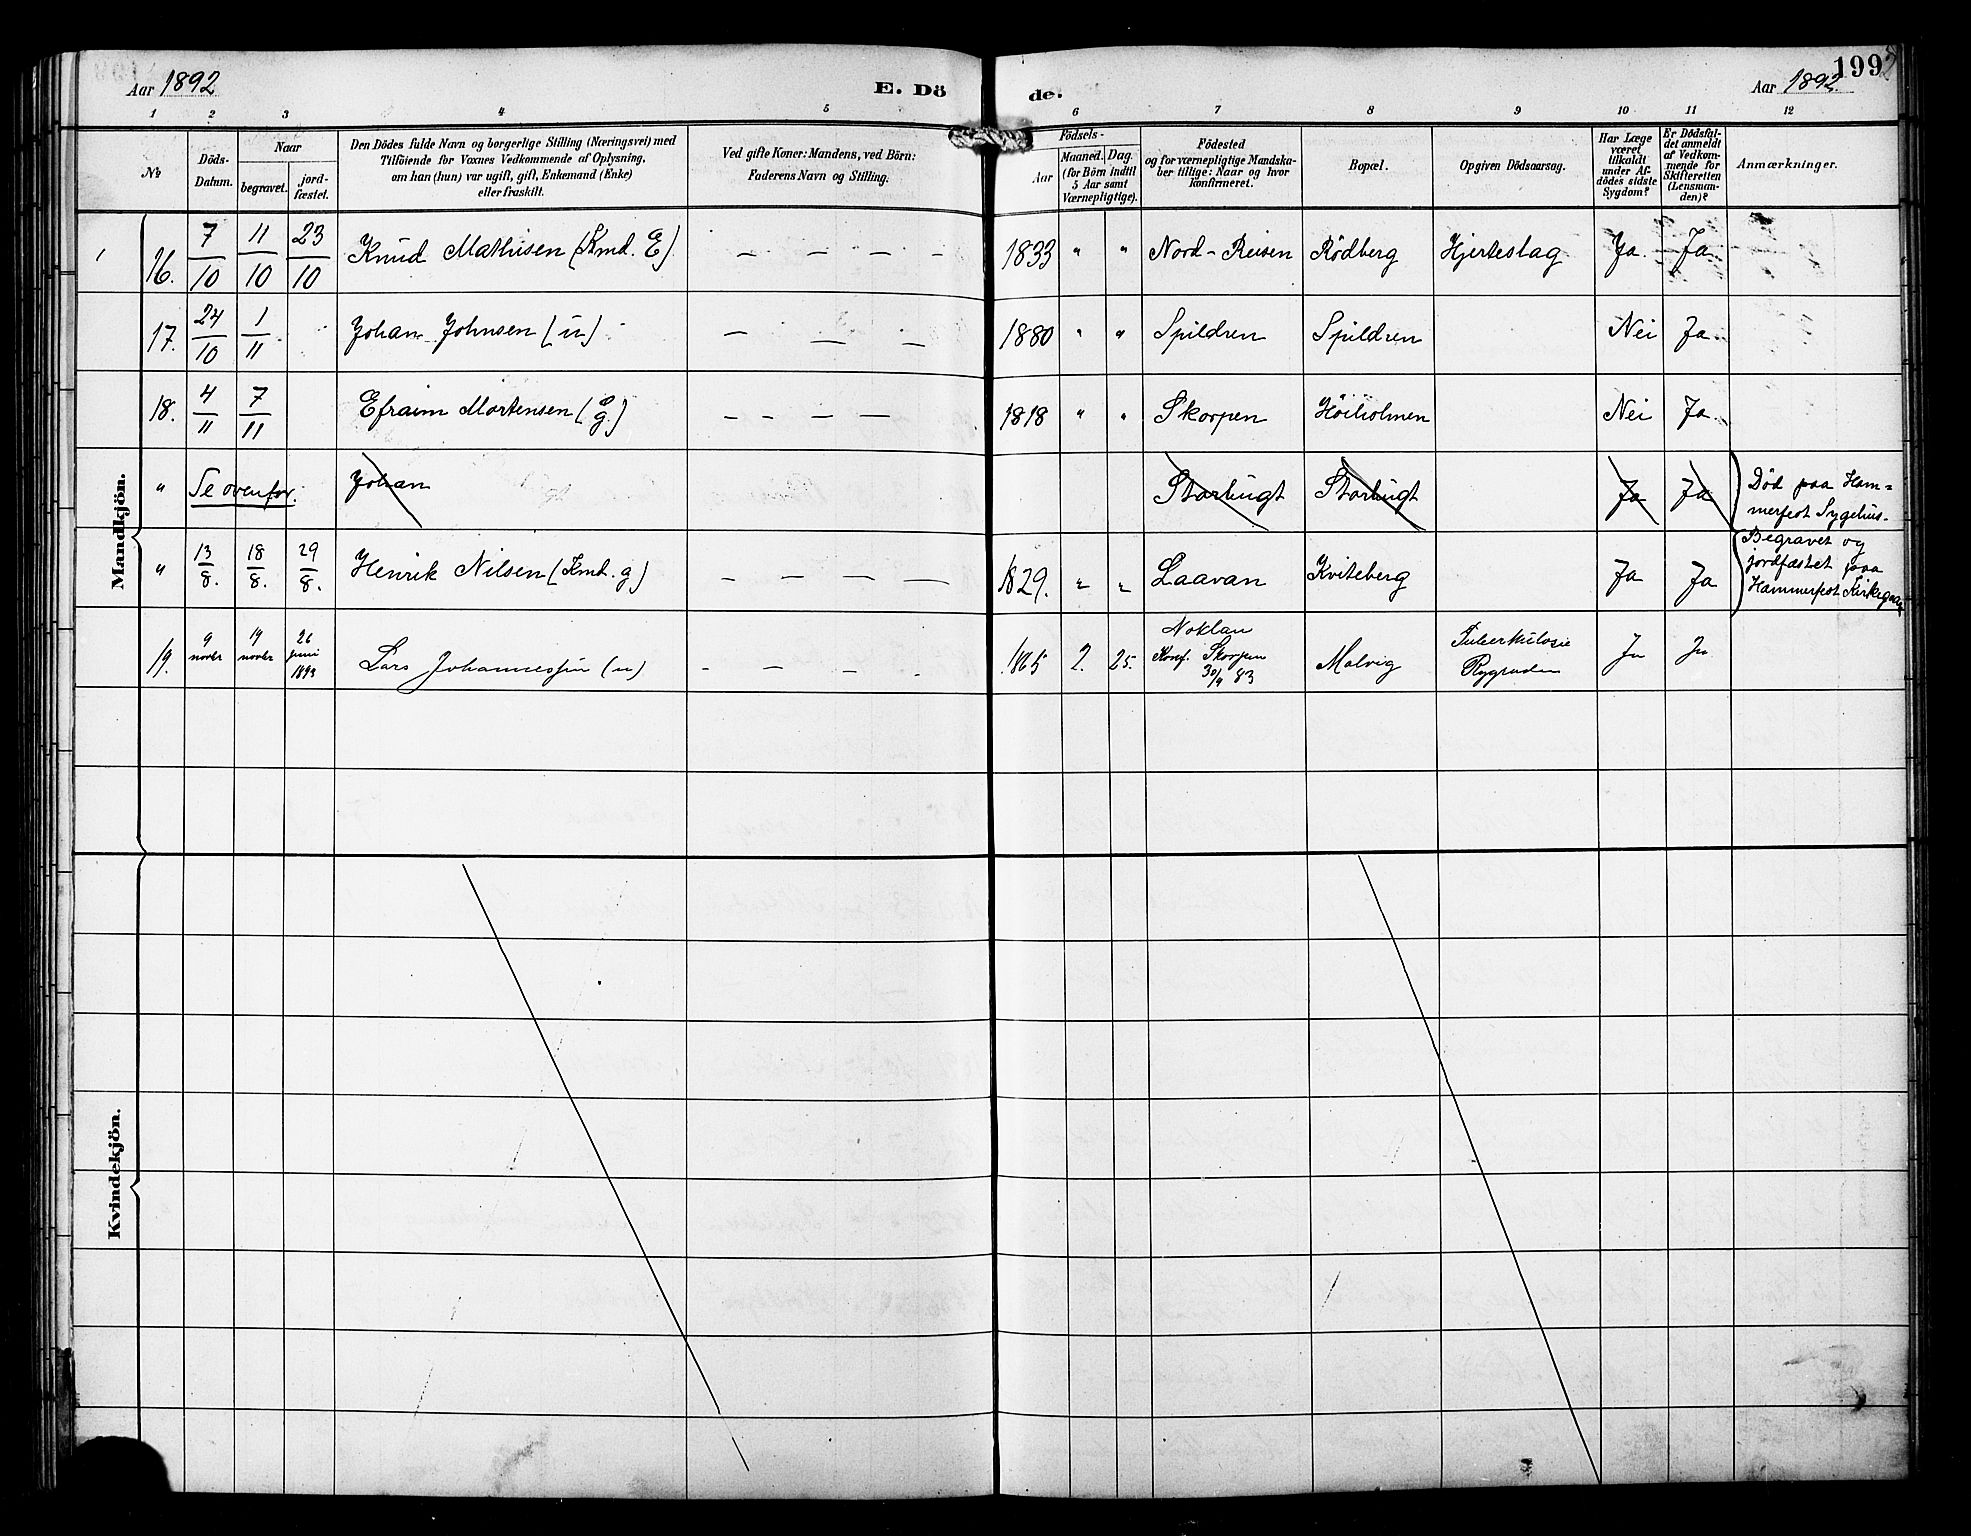 Aar 1892
E. Dö
de.
Aar 1892
199
1 2 3 4 5 6 7 8 9 10 11 12
No
Döds-Datum.
Naar
begravet.
jord-fæstet.
Den Dödes fulde Navn og borgerlige Stilling (Næringsvei) med
Tilföiende for Voxnes Vedkommende af Oplysning,
om han (hun) var ugift, gift, Enkemand (Enke)
eller fraskilt.
Ved gifte Koner: Mandens, ved Börn:
Faderens Navn og Stilling.
Födsels-
Aar
Maaned. Dag.
(for Börn indtil
5 Aar samt
Værnepligtige).
Födested
og for værnepligtige Mandska-
ber tillige: Naar og hvor
konfirmeret.
Bopæl.
Opgiven Dödsaarsag.
Har Læge
været
tilkaldt
under Af-
dödes sidste
Sygdom?
Er Dödsfal-
det anmeldt
af Vedkom-
mende for
Skifteretten
(Lensman-
den)?
Anmærkninger.
Mandkjön.
16. 7/10 11/10 23/10 Knud Mathisen (Kmd. E) — — — — 1833 " " Nord-Reisen Rödberg Hjerteslag Ja. Ja.
17. 24/10 1/11 Johan Johnsen (u) — — — 1880 " " Spildren Spildren Nei Ja.
18. 4/11 7/11 Efraim Mortensen (g.) — — — — 1818 " " Skorpen Höiholmen Nei Ja.
" Se ovenfor. Johan Storbugt Storbugt Ja Ja Död paa Ham=
merfest Sygehus.
" 13/8. 18/8. 29/8. Henrik Nilsen (Kmd. g) — — — — 1829. " " Laavan Kviteberg Ja Ja Begravet og
jordfæstet paa
Hammerfest Kirkegaard
19. 9 novbr 19 novbr 26 juni 1893 Lars Johannessen (u) - — — . 1865 2. 25. Noklan
Konf. Skorpen
30/9 83 Malvig Tuberkulosie
Rygraden Ja Ja
Kvindekjön.